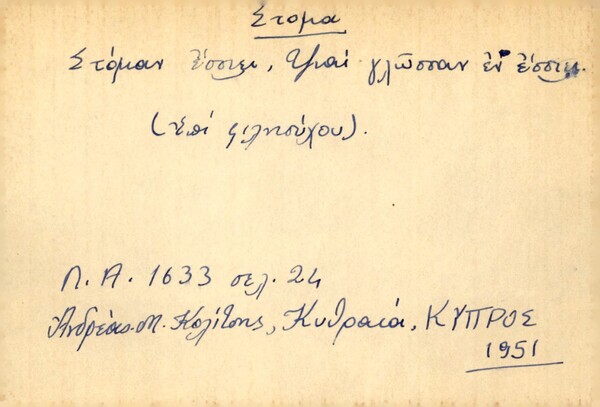 Στόμα
Στόμαν ἔσσιει, τζιαί γλῶσσαν ἐν ἔσσιει.
(Ἐπί φιλησύχου).
Λ.Α. 1633 σελ. 24
Ἀνδρέας Μ. Κολίτσης, Κυθραία, ΚΥΠΡΟΣ
1951